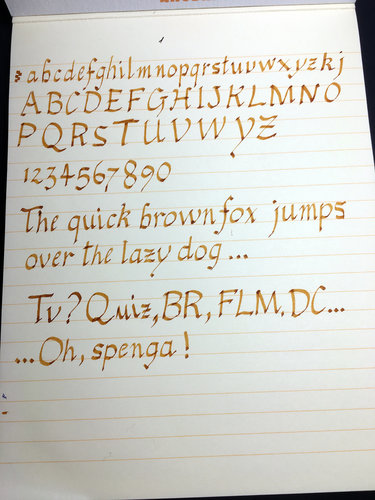 abcdefghilmnopqrstuvwxyzkj
ABCDEFGHIJKLMNO
PQRSTUVWYZ
1234567890
The quick brown fox jumps
over the lazy dog...
Tv? Quiz, BR, FLM. DC...
...Oh, spenga!